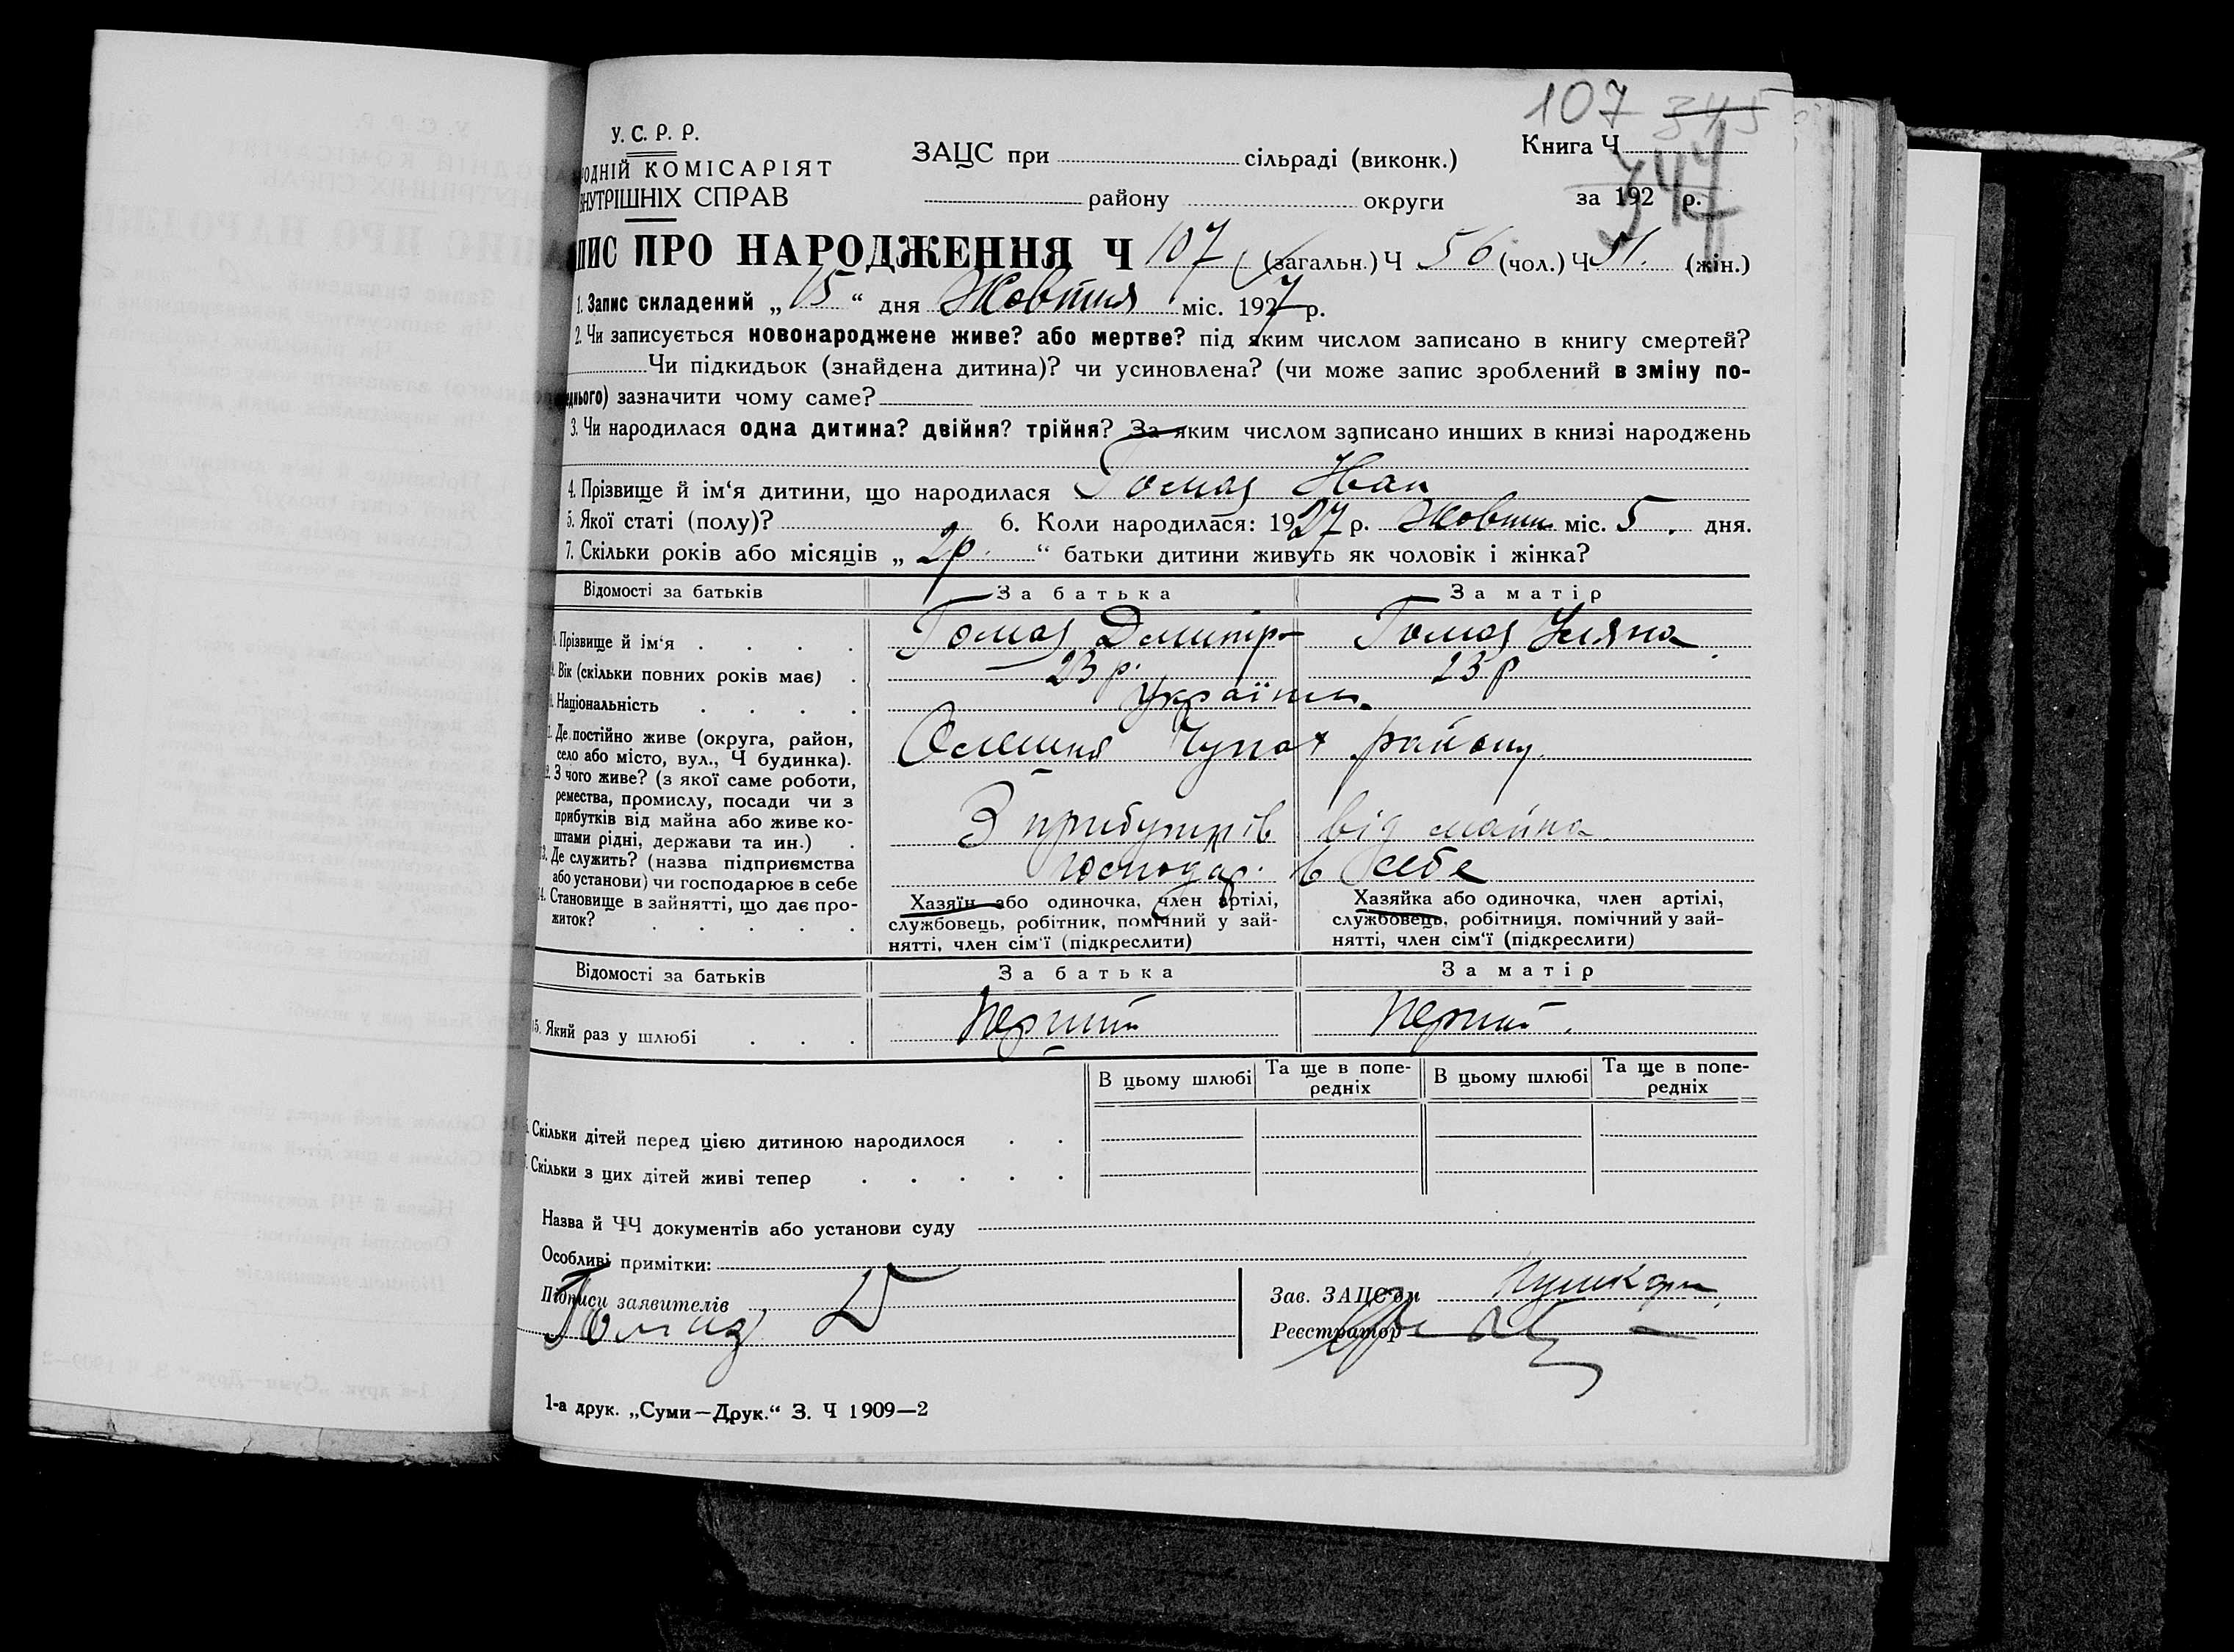 107 345
347
У. С. Р. Р.
РОДНІЙ КОМІСАРІЯТ
ВНУТРІШНІХ СПРАВ
ЗАЦС при сільраді (виконк.)
району округи
Книга Ч
за 192 р.
ПИС ПРО НАРОДЖЕННЯ Ч 107 (загальн.) Ч 56 (чол.) Ч 51. (жін.)
1. Запис складений „ 15 “ дня Жовтня міс. 1927 р.
2. Чи записується новонароджене живе? або мертве? під яким числом записано в книгу смертей?
Чи підкидьок (знайдена дитина)? чи усиновлена? (чи може запис зроблений в зміну по-
днього) зазначити чому саме?
3. Чи народилася одна дитина? двійня? трійня? За яким числом записано инших в книзі народжень
4. Прізвище й ім‘я дитини, що народилася Гомаз Иван
5. Якої статі (полу)? 6. Коли народилася: 1927 р. Жовтн міс. 5. дня.
7. Скільки років або місяців „ 2р. “ батьки дитини живуть як чоловік і жінка?
Відомості за батьків За батька За матір
Прізвище й ім‘я Гомаз Дмитро Гомаз Уляна
Вік (скільки повних років має) 23 р. 23 р
Національність Україн.
Де постійно живе (округа, район,
село або місто, вул., Ч будинка). Олешня Чупах району.
З чого живе? (з якої саме роботи,
ремества, промислу, посади чи з
прибутків від майна або живе ко-
штами рідні, держави та ин.) З прибутків від майна
13. Де служить? (назва підприємства
або установи) чи господарює в себе господар. в себе
14. Становище в зайнятті, що дає про-
житок?
Хазяїн або одиночка, член артілі,
службовець, робітник, помічний у зай-
нятті, член сім‘ї (підкреслити)
Хазяйка або одиночка, член артілі,
службовець, робітниця, помічний у зай-
нятті, член сім‘ї (підкреслити)
Відомості за батьків За батька За матір
15. Який раз у шлюбі Перший Перший.
В цьому шлюбі Та ще в попе-
редніх В цьому шлюбі Та ще в попе-
редніх
Скільки дітей перед цією дитиною народилося
Скільки з цих дітей живі тепер
Назва й ЧЧ документів або установи суду
Особливі примітки:
Підписи заявителів
Гомаз Д
Зав. ЗАЦС‘ом Пушкар
Реєстратор
1-а друк. „Суми—Друк.“ З. Ч 1909—2